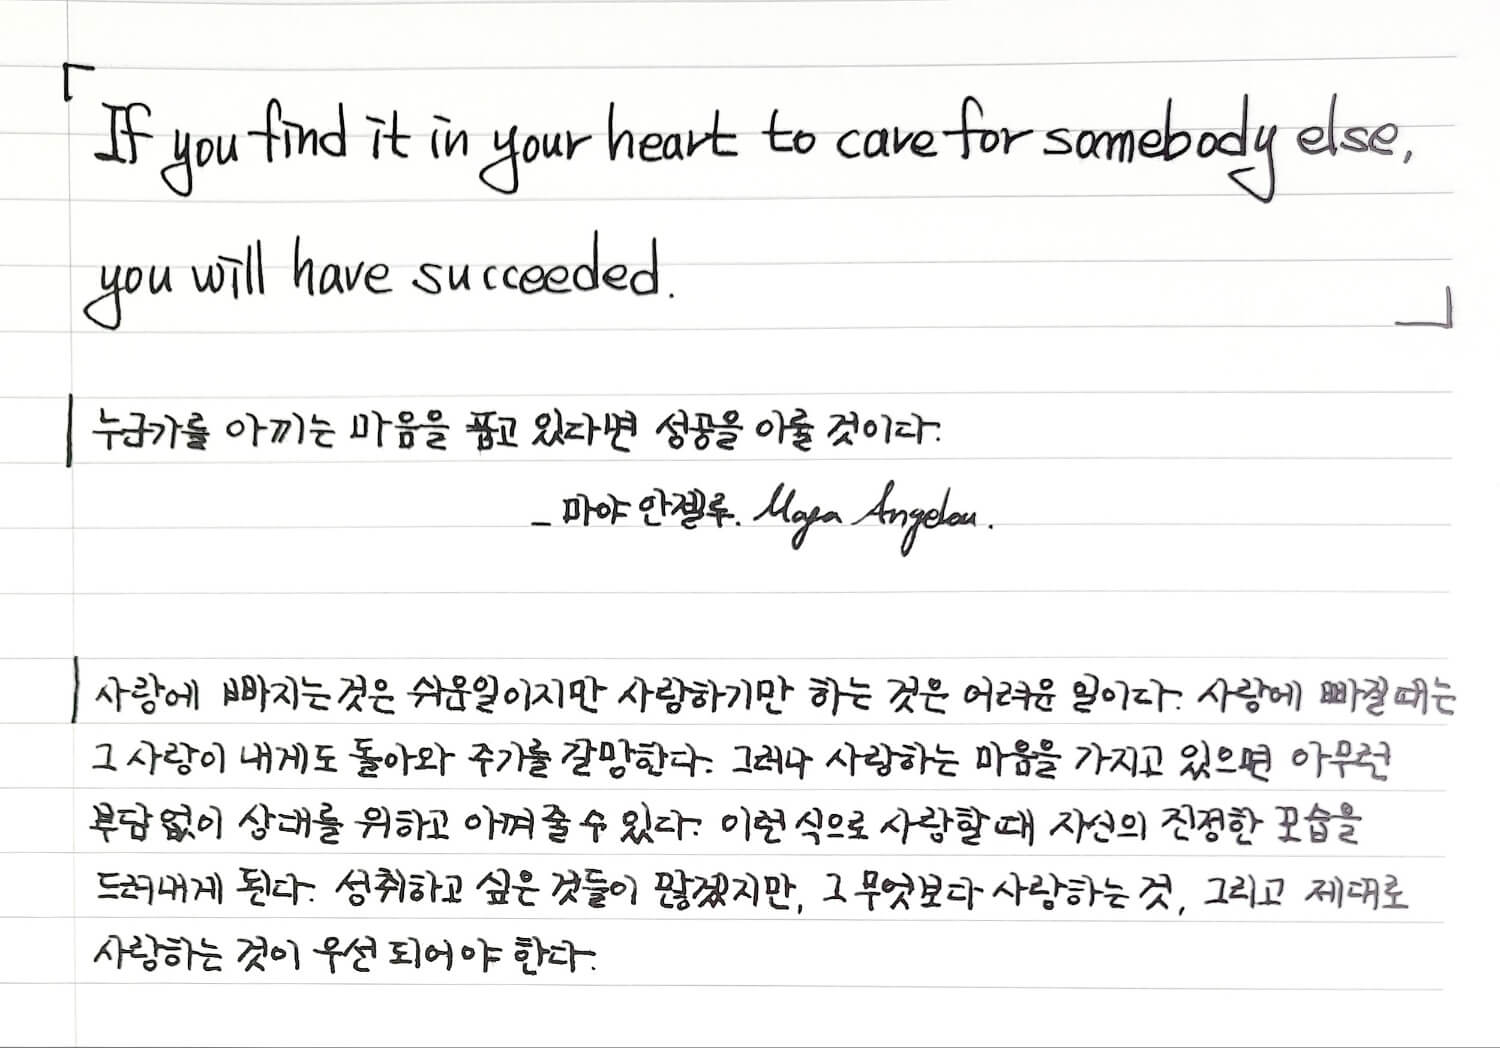 「
If you find it in your heart to care for somebody else,
you will have succeeded.
」
누군가를 아끼는 마음을 품고 있다면 성공을 이룰 것이다.
_ 마야 안젤루. Maya Angelou.
사랑에 빠지는 것은 쉬운일이지만 사랑하기만 하는 것은 어려운 일이다. 사랑에 빠질때는
그 사랑이 내게도 돌아와 주기를 갈망한다. 그러나 사랑하는 마음을 가지고 있으면 아무런
부담없이 상대를 위하고 아껴줄 수 있다. 이런 식으로 사랑할 때 자신의 진정한 모습을
드러내게 된다. 성취하고 싶은 것들이 많겠지만, 그 무엇보다 사랑하는 것, 그리고 제대로
사랑하는 것이 우선 되어야 한다.